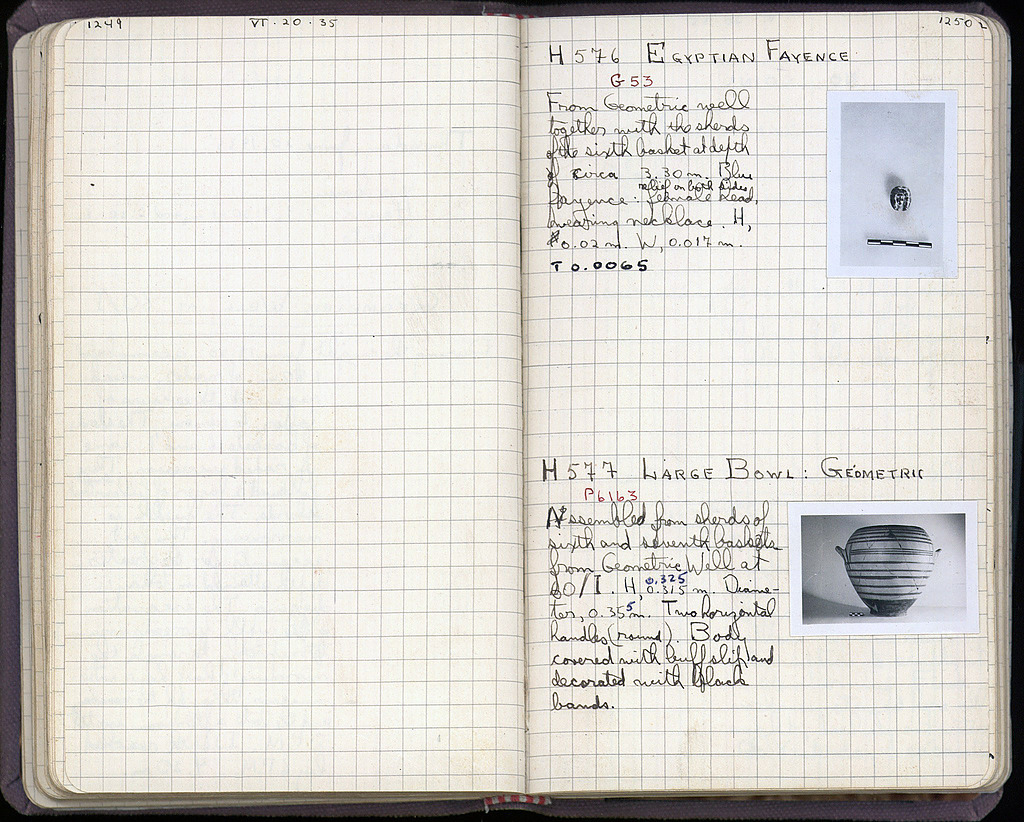 1249
VI · 20 · 35
1250
H 576 EGYPTIAN FAYENCE
G 53
From Geometric well
together with the sherds
of the sixth basket at depth
of circa 3.30 m. Blue
relief on both sides
fayence: female head,
wearing necklace. H,
0.02 m. W, 0.017 m.
T 0.0065
H 577 LARGE BOWL: GEOMETRIC
P6163
Assembled from sherds of
sixth and seventh baskets
from Geometric Well at
0.325
/I. H, 0.315 m. Diame-
ter, 0.35⁵m. Two horizontal
handles (round). Body
covered with buff slip and
decorated with black
bands.